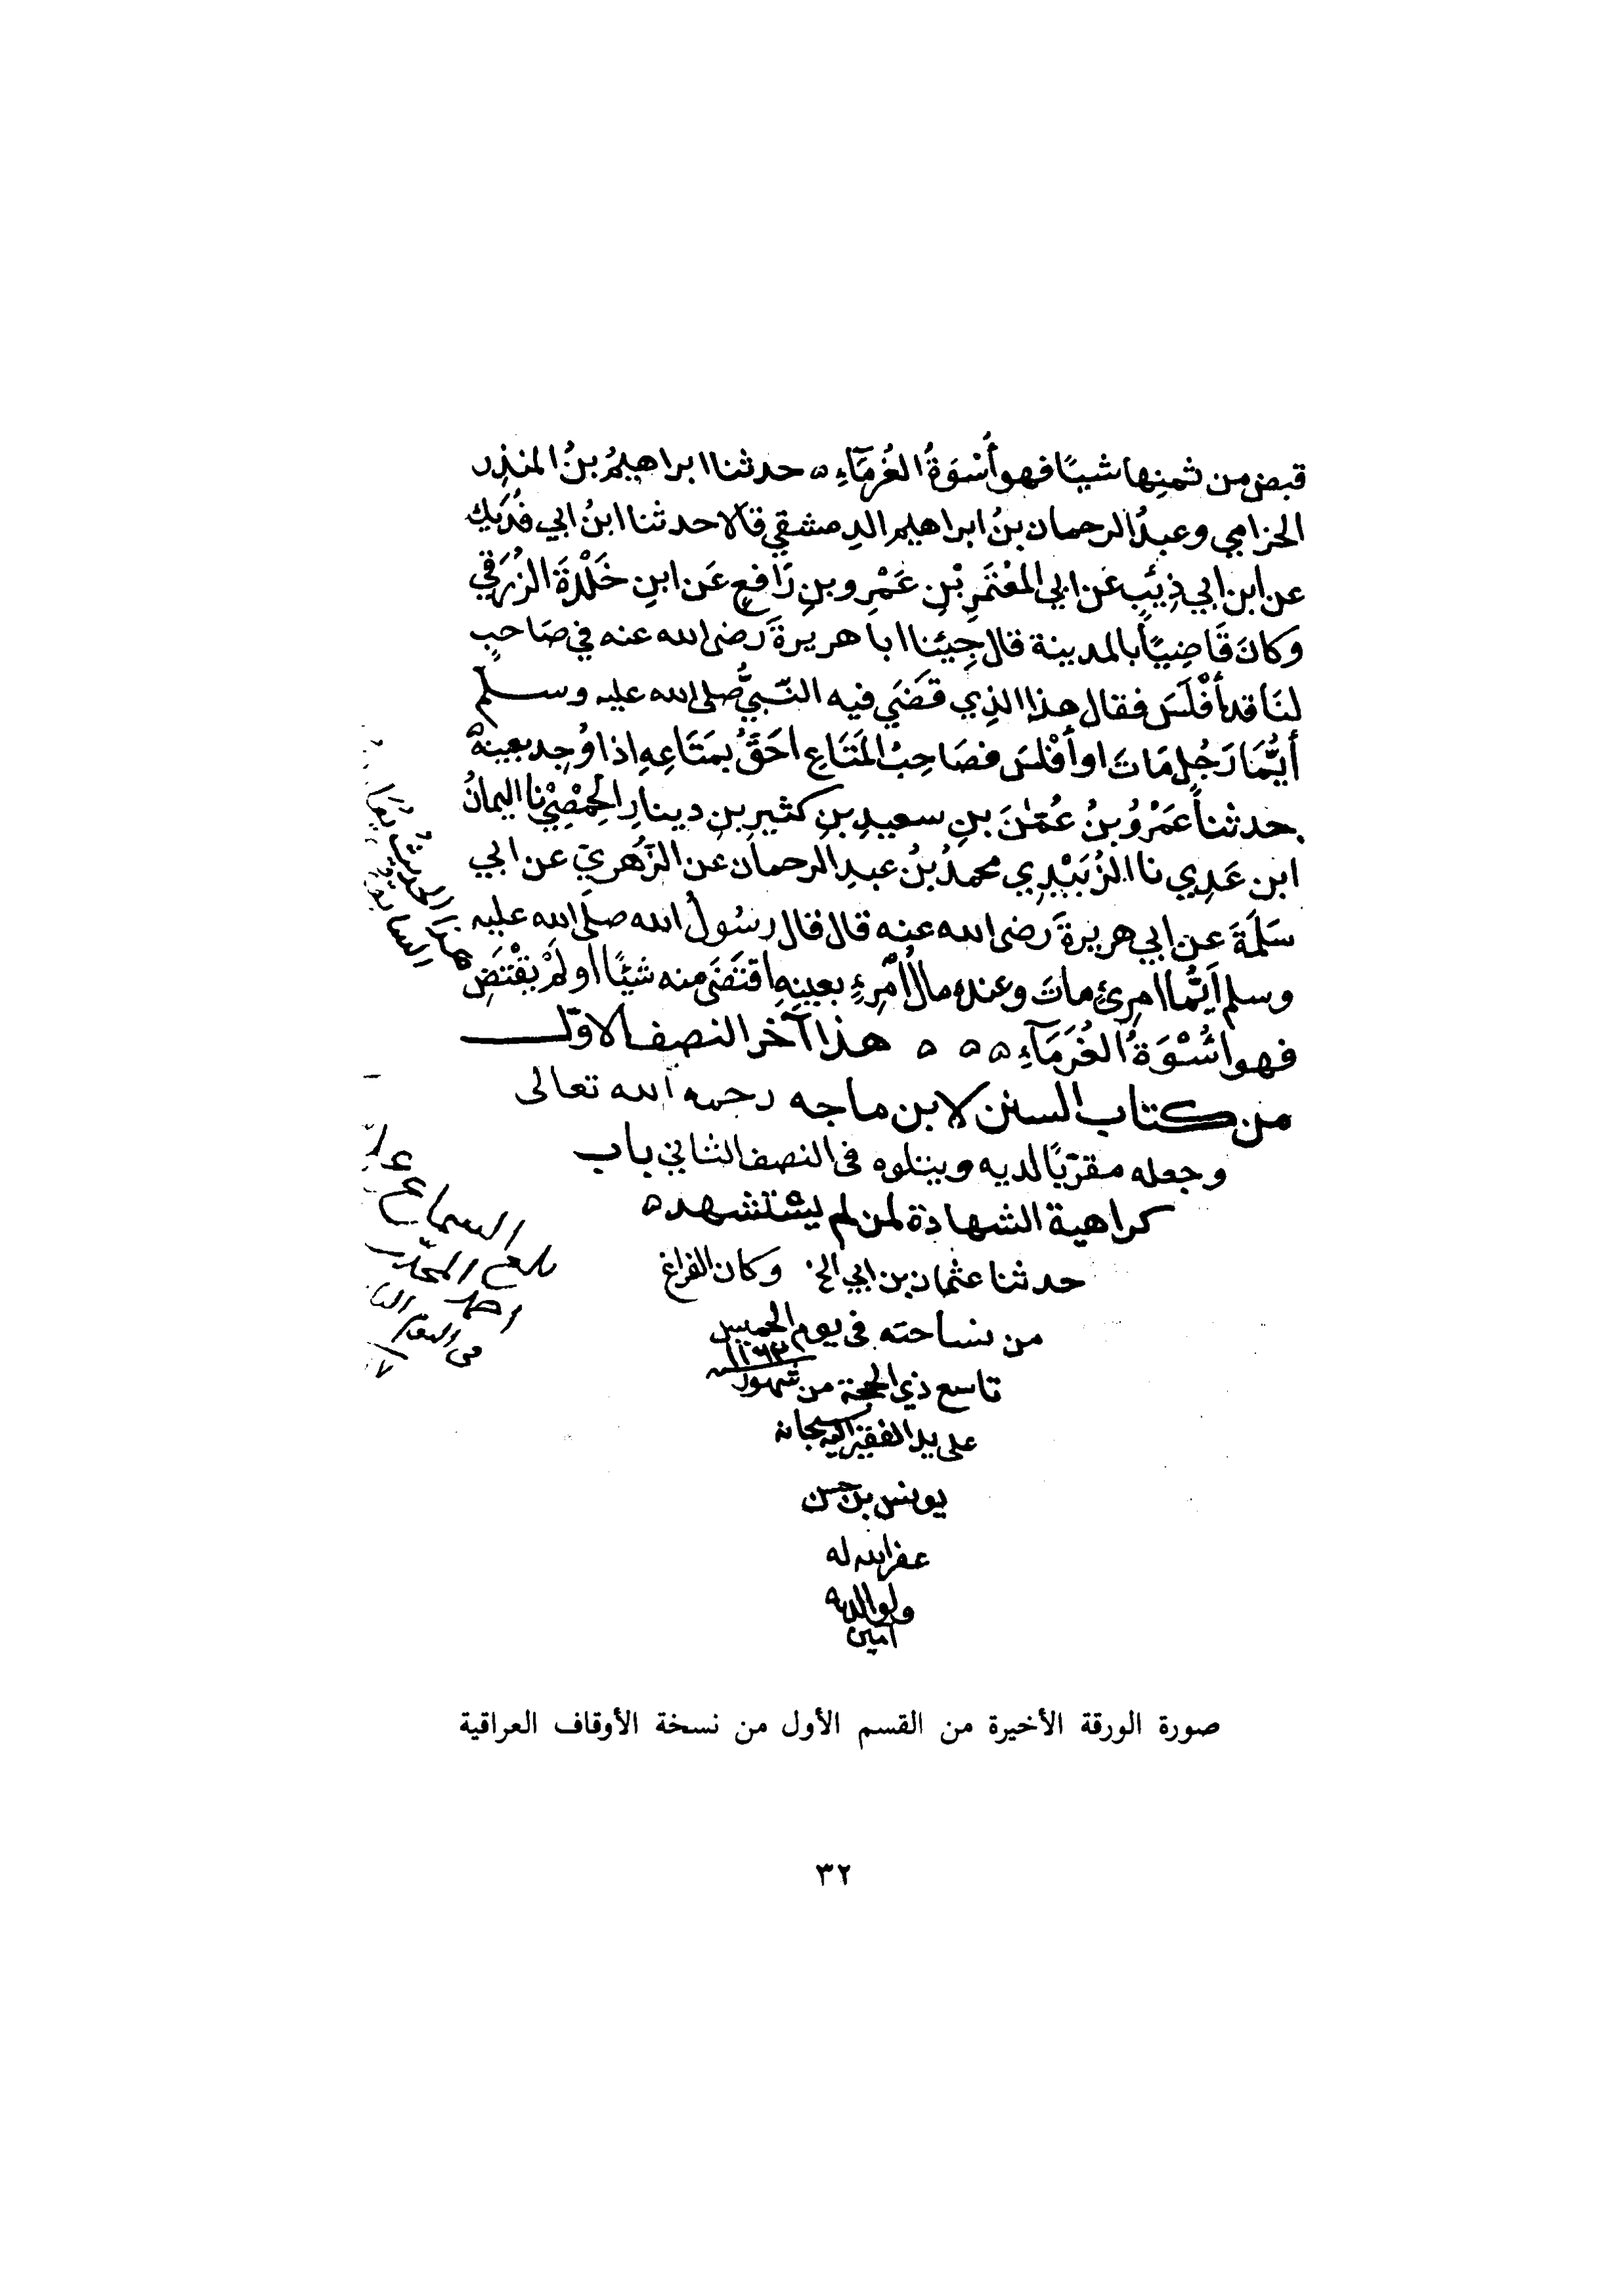 قبض من ثمنِها شيًا فهو أُسْوَةُ الغُرَمَآءِ ه حدثنا ابراهيمُ بنُ المنذِر
الحزامي وعبدُ الرحمان بنُ ابراهيم الدِمشقي قالا حدثنا ابنُ ابي فُدَيك
عن ابن ابي ذِيبٍ عَن ابي المعْتَمَرِ بْنِ عَمْرِو بنِ رَافعٍ عَن ابنِ خَلْدَةَ الزُرَقي
وكانَ قَاضِيًا بالمدينة قال جِئنا ابا هريرةَ رضى الله عنه في صَاحبٍ
لنَا قد أفْلَسَ فقال هذا الذِي قَضَي فيه النّبيُّ صلى الله عليه وسلم
أيُّمَا رَجُلٍ مَاتَ او أَفْلسَ فصَاحِبُ المَتَاعِ احَقُّ بمَتَاعِهِ اذا وُجِد بعينه
حدثنا عَمْرُو بنُ عُثمٰنَ بنِ سعيدِ بنِ كثيرِ بنِ دينارِ الحِمْصِيْ نا اليمانُ
ابن عَدِي نا الزُبَيْدِي محمدُ بنُ عبدِ الرحمان عن الزّهْرِيّ عن ابي
سَلَمَةَ عن ابي هريرةَ رضى الله عنه قال قال رسُولُ الله صلى الله عليه
وسلم اَيُّما امرِئٍ ماتَ وعنده مالُ امْرِءٍ بعينِهِ اقتَضَى منه شيْئًا او لَمْ يقْتَضِ
فهو اسْوَةُ الغُرَمَآءِ ه ه ه هذا آخر النصف الاوّل
من كتاب السنن لابن ماجه رحمه الله تعالى
وجعله مقرّبًا لديه ويتلوه فى النصف الثاني باب
كراهية الشهادة لمن لم يستشهد ه
حدثنا عثمان بن ابي الخ وكان الفراغ
من نساخته فى يوم الخميس
تاسع ذي الحجة من شهور ١١٦٢
على يد الفقير اليه سبحانه
يونس بن حسن
غفر الله له
ولوالديه
آمين
هذا الحديث
السماع
بلغ
صورة الورقة الأخيرة من القسم الأول من نسخة الأوقاف العراقية
٣٢